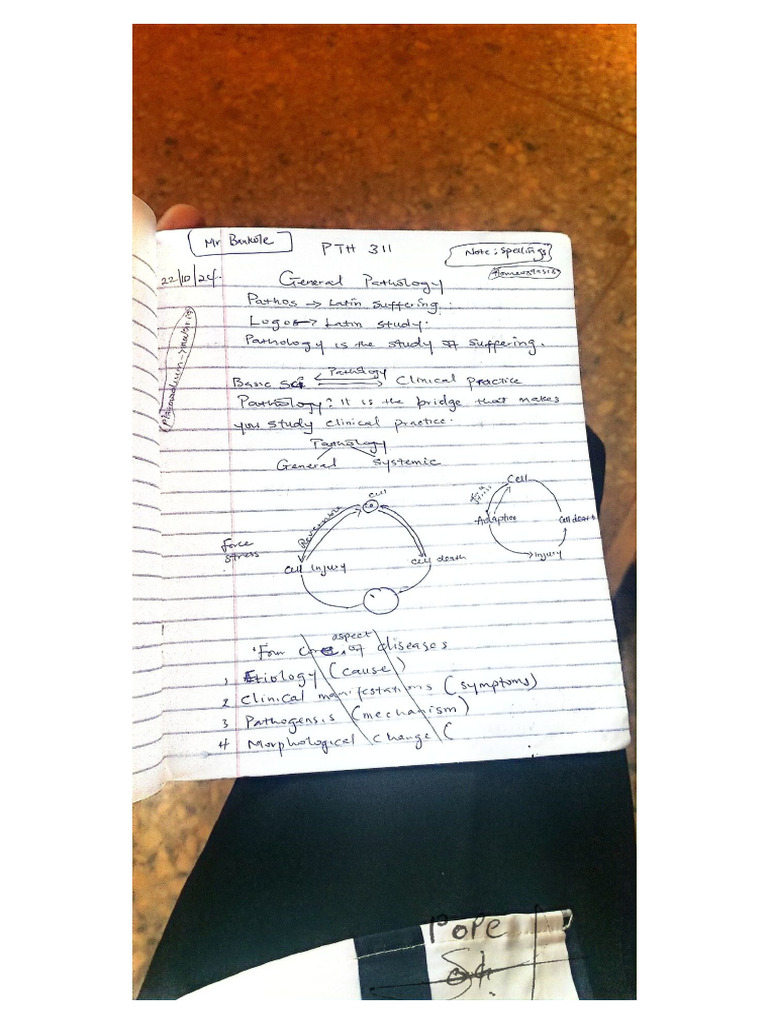 Mr Bankole
PTH 311
Note: Spellings
Homeostasis
22/10/24.
General Pathology
Pathos → Latin suffering.
Logos → Latin study.
Pathology is the study of suffering.
Plasmodium → malaria
Pathology
Basic Sci Clinical practice
Pathology: It is the bridge that makes
you study clinical practice.
Pathology
General Systemic
Cell
Cell
Reversible
Stress
Adaptive
Cell death
Injury
Force
stress
Cell Injury
Cell death
aspect
Four core of diseases
1 Etiology (cause)
2 Clinical manifestations (symptoms)
3 Pathogensis (mechanism)
4 Morphological change (
POPE
St.